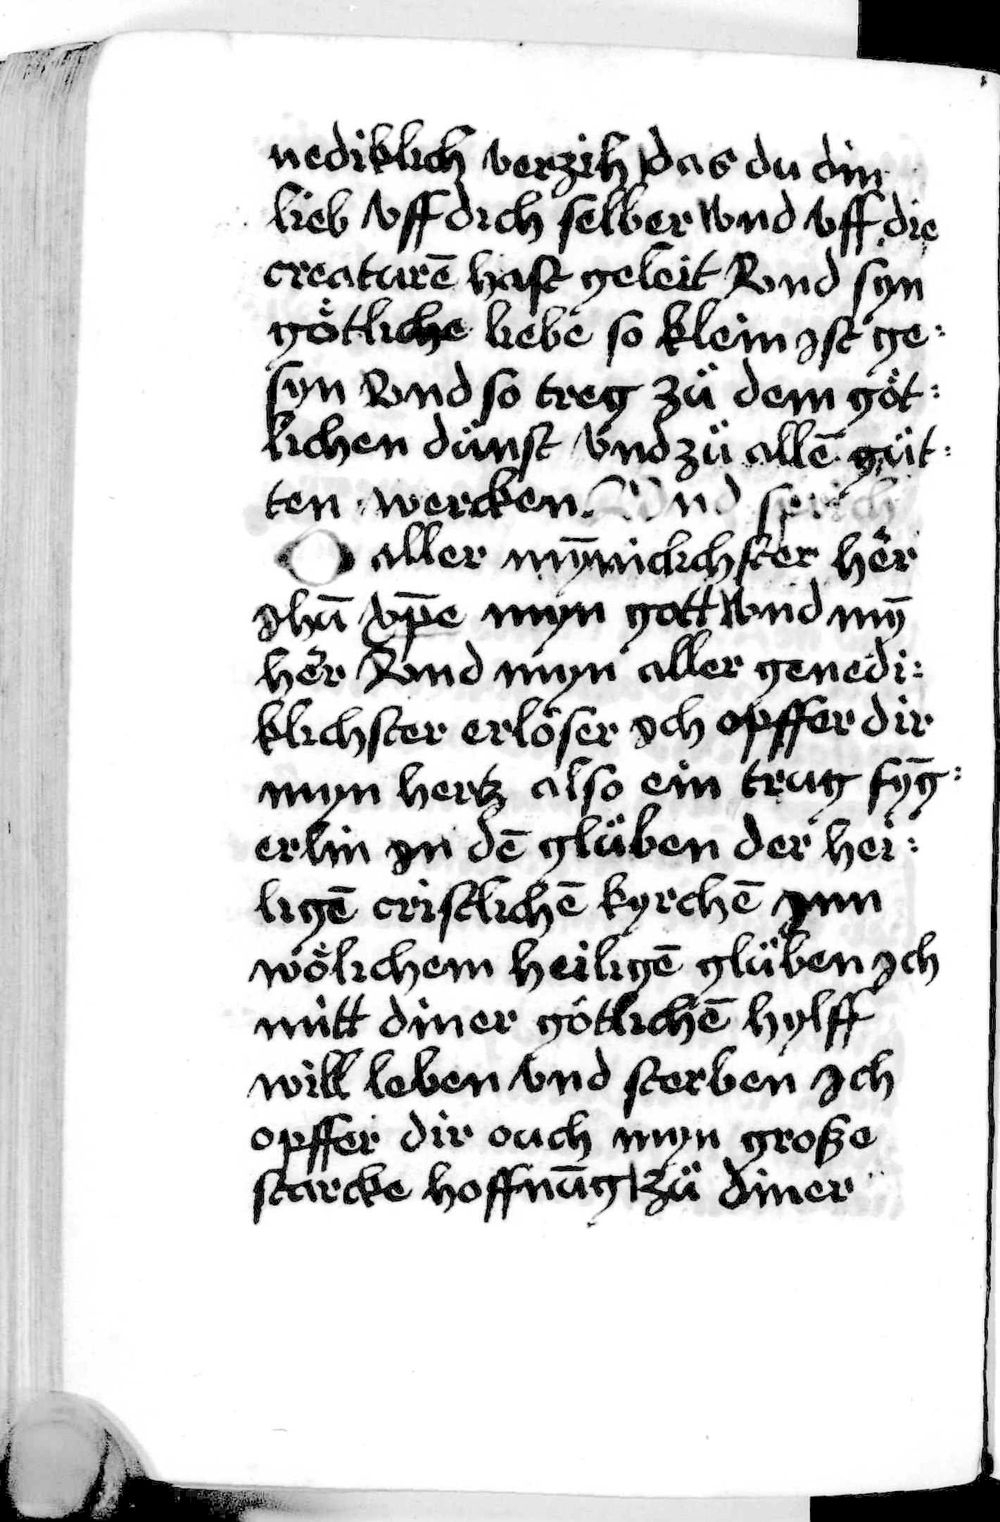 nediklich verzih das du din
lieb vff dich selber vnd vff die
creaturē hast geleit Vnd syn
götliche liebe so klein ist ge:
syn Vnd so treg zů dem göt:
lichen dünst vnd zů allē gůt:
ten wercken. Vnd sprich
O aller mȳnicklichster her
Jhū xp̄e myn gott vnd mȳ
her Vnd myn aller genedi:
klichster erlöser Ich opffer dir
myn hertz also ein trag
erlin In dē glůben der hei:
ligē cristlichē kyrchē Inn
wölichem heiligē glůben Ich
mitt diner götlichē hylff
will leben vnd sterben Ich
opffer dir ouch myn große
starcke hoffnūg zů diner